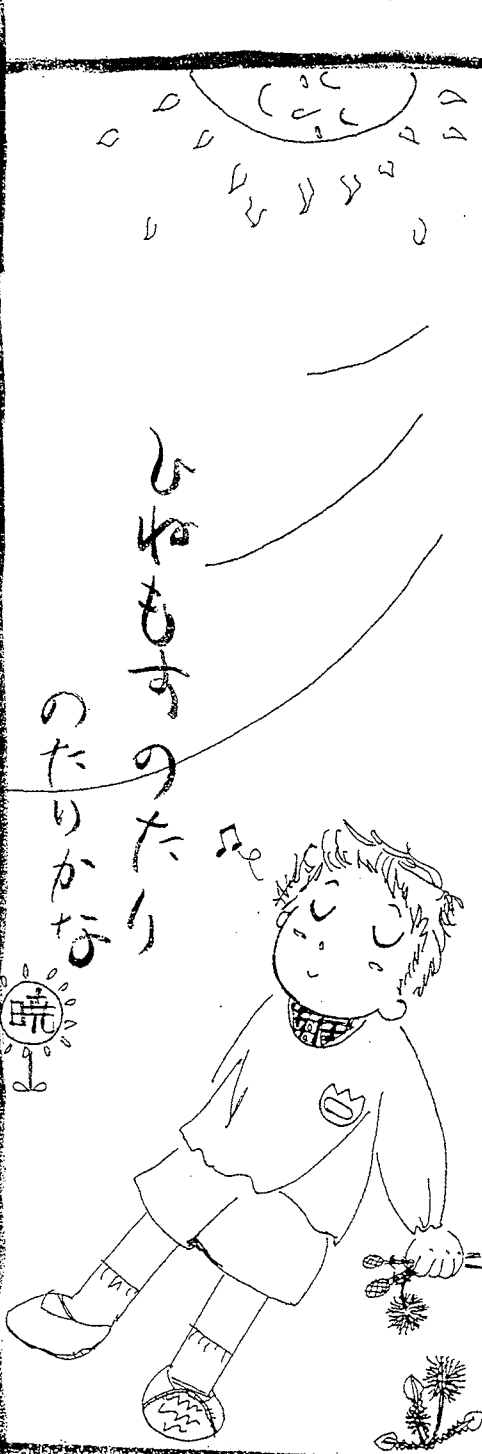 ひねもすのたり
のたりかな
暁